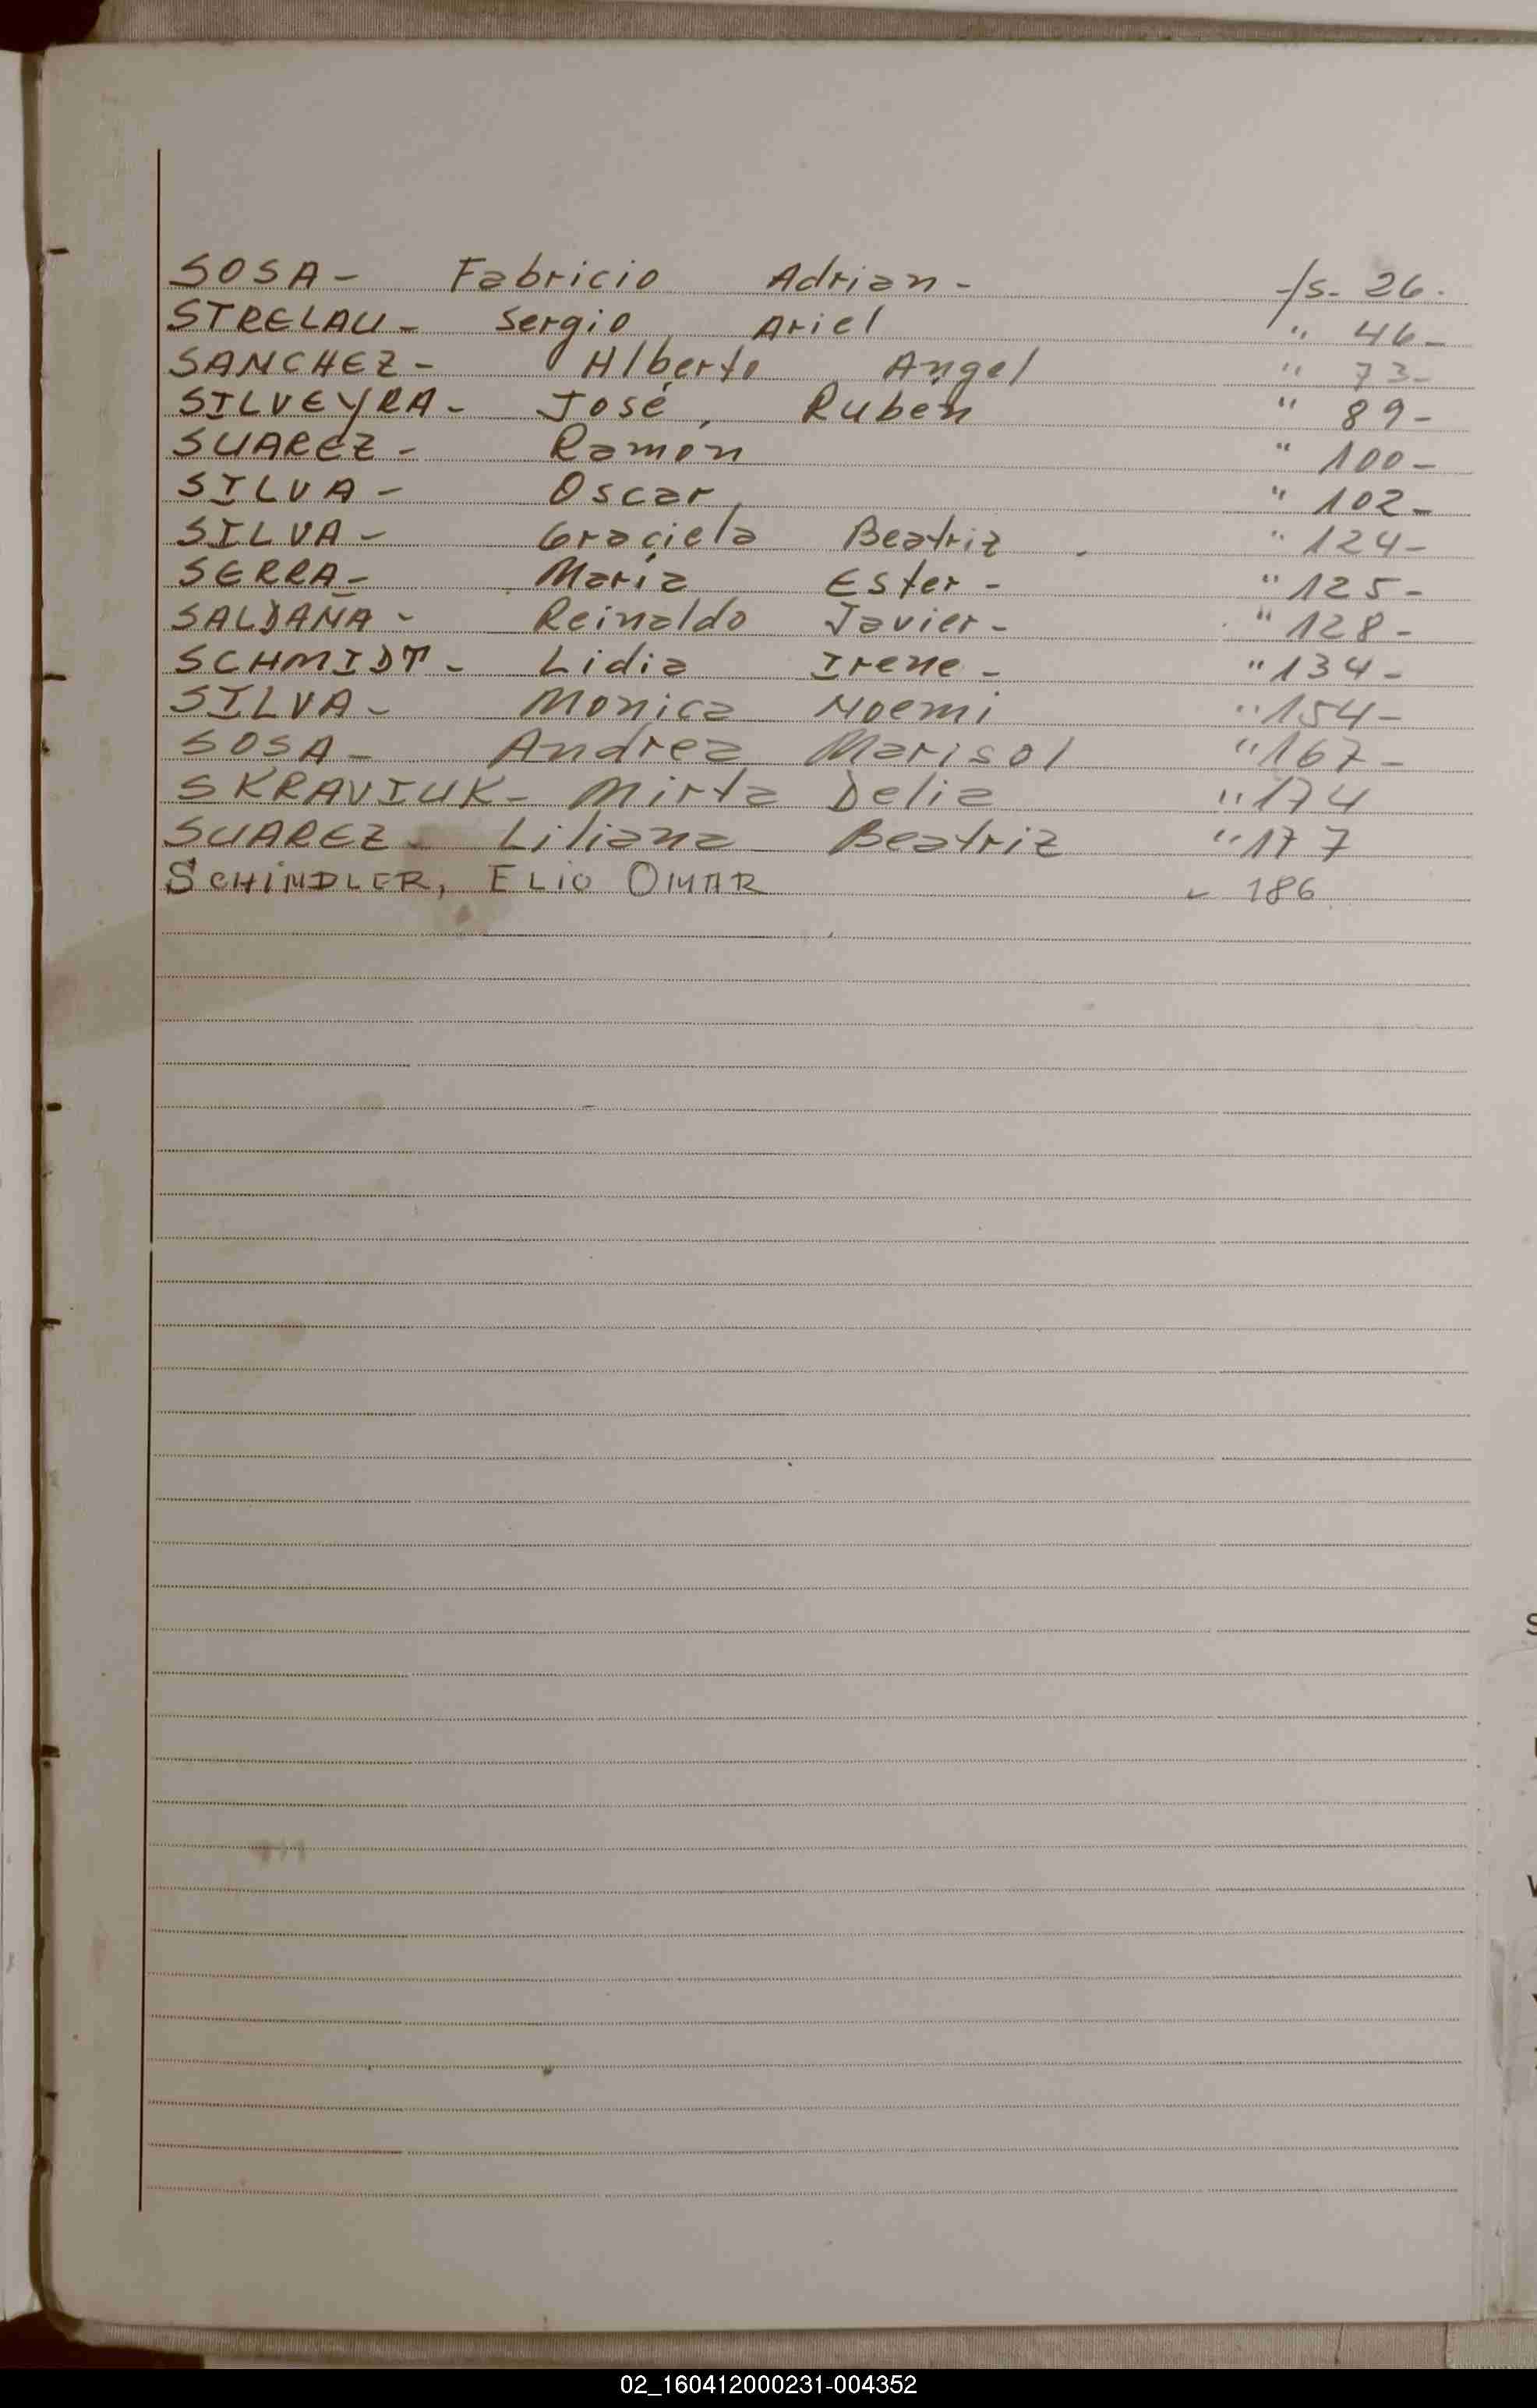 SOSA - Fabricio Adrian - fs. 26.
STRELAU - Sergio Ariel " 46 -
SANCHEZ - Alberto Angel " 73 -
SILVEYRA - José Ruben " 89 -
SUAREZ - Ramón " 100 -
SILVA - Oscar " 102 -
SILVA - Graciela Beatriz - " 124 -
SERRA - Maria Ester - " 125 -
SALDAÑA - Reinaldo Javier - " 128 -
SCHMIDT - Lidia Irene - " 134 -
SILVA - Monica Noemi " 154 -
SOSA - Andrea Marisol " 167 -
SKRAVIUK - Mirta Delia " 174
SUAREZ - Liliana Beatriz " 177
SCHINDLER, ELIO OMAR " 186
02_160412000231-004352